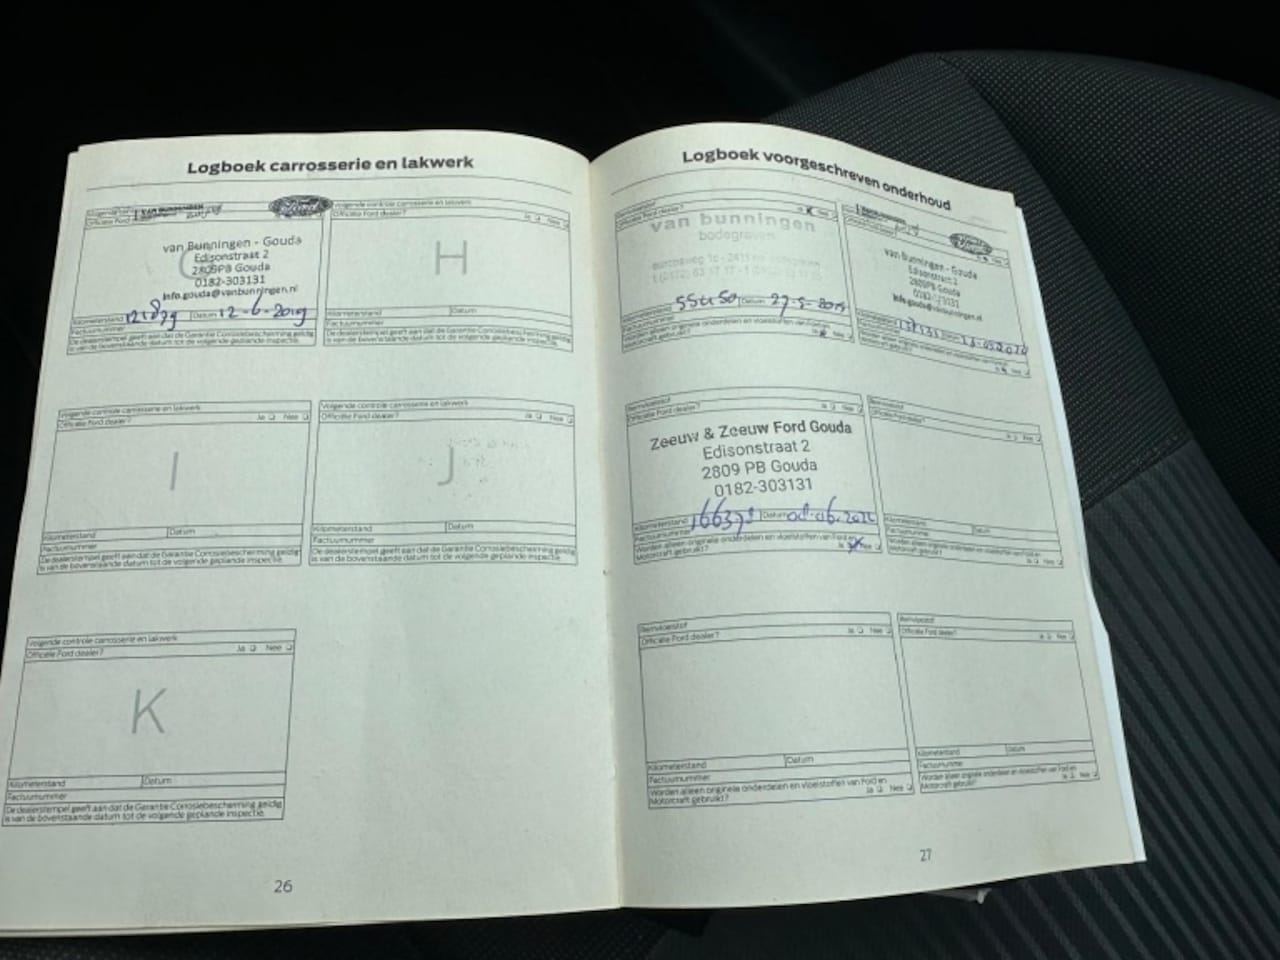 Logboek carrosserie en lakwerk
VAN BUNNINGEN
Ford
Officiële Ford
van Bunningen - Gouda
Edisonstraat 2
2809PB Gouda
0182-303131
info.gouda@vanbunningen.nl
Kilometerstand Datum 12-6-2019
Factuurnummer
De dealerstempel geeft aan dat de Garantie Corrosiebescherming geldig
is van de bovenstaande datum tot de volgende geplande inspectie.
Volgende controle carrosserie en lakwerk
Officiële Ford dealer? Ja Nee
H
Kilometerstand Datum
Factuurnummer
De dealerstempel geeft aan dat de Garantie Corrosiebescherming geldig
is van de bovenstaande datum tot de volgende geplande inspectie.
Volgende controle carrosserie en lakwerk
Officiële Ford dealer? Ja Nee
I
Kilometerstand Datum
Factuurnummer
De dealerstempel geeft aan dat de Garantie Corrosiebescherming geldig
is van de bovenstaande datum tot de volgende geplande inspectie.
Volgende controle carrosserie en lakwerk
Officiële Ford dealer? Ja Nee
J
Kilometerstand Datum
Factuurnummer
De dealerstempel geeft aan dat de Garantie Corrosiebescherming geldig
is van de bovenstaande datum tot de volgende geplande inspectie.
Volgende controle carrosserie en lakwerk
Officiële Ford dealer? Ja Nee
K
Kilometerstand Datum
Factuurnummer
De dealerstempel geeft aan dat de Garantie Corrosiebescherming geldig
is van de bovenstaande datum tot de volgende geplande inspectie.
26
Logboek voorgeschreven onderhoud
Remvloeistof
Officiële Ford dealer? Ja Nee
van bunningen
bodegraven
Kilometerstand Datum
Factuurnummer
Worden alleen originele onderdelen en vloeistoffen van Ford en
Motorcraft gebruikt? Ja Nee
Ford
van Bunningen - Gouda
Edisonstraat 2
2809PB Gouda
0182-303131
info.gouda@vanbunningen.nl
Kilometerstand Datum
Factuurnummer
Worden alleen originele onderdelen en vloeistoffen van Ford en
Motorcraft gebruikt? Ja Nee
Remvloeistof
Officiële Ford dealer? Ja Nee
Zeeuw & Zeeuw Ford Gouda
Edisonstraat 2
2809 PB Gouda
0182-303131
Kilometerstand Datum
Factuurnummer
Worden alleen originele onderdelen en vloeistoffen van Ford en
Motorcraft gebruikt? Ja Nee
Remvloeistof
Officiële Ford dealer? Ja Nee
Kilometerstand Datum
Factuurnummer
Worden alleen originele onderdelen en vloeistoffen van Ford en
Motorcraft gebruikt? Ja Nee
Remvloeistof
Officiële Ford dealer? Ja Nee
Kilometerstand Datum
Factuurnummer
Worden alleen originele onderdelen en vloeistoffen van Ford en
Motorcraft gebruikt? Ja Nee
Remvloeistof
Officiële Ford dealer? Ja Nee
Kilometerstand Datum
Factuurnummer
Worden alleen originele onderdelen en vloeistoffen van Ford en
Motorcraft gebruikt? Ja Nee
27